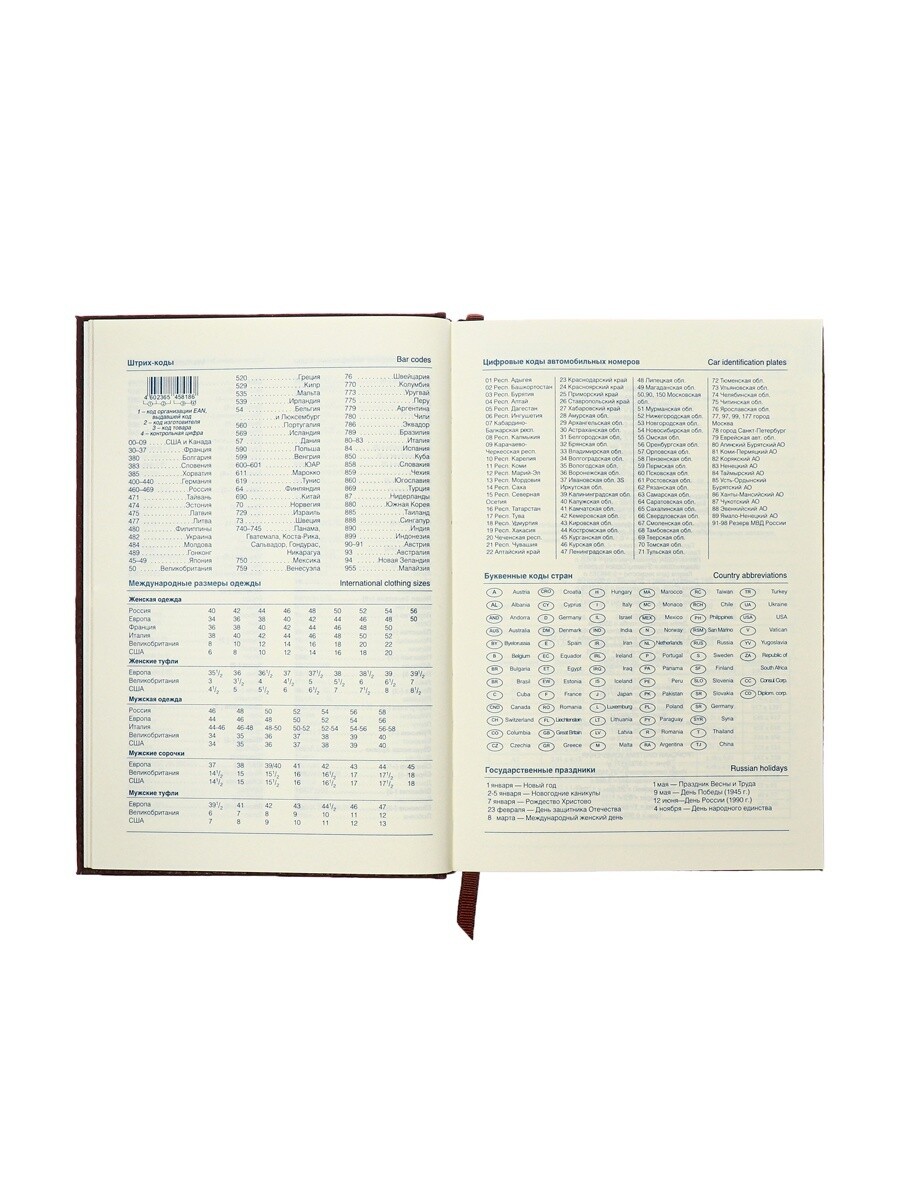 Штрих-коды Bar codes
4 602365 458186
1 – код организации EAN,
выдавшей код
2 – код изготовителя
3 – код товара
4 – контрольная цифра
00–09 США и Канада
30–37 Франция
380 Болгария
383 Словения
385 Хорватия
400–440 Германия
460–469 Россия
471 Тайвань
474 Эстония
475 Латвия
477 Литва
480 Филиппины
482 Украина
484 Молдова
489 Гонконг
45–49 Япония
50 Великобритания
520 Греция
529 Кипр
535 Мальта
539 Ирландия
54 Бельгия
и Люксембург
560 Португалия
569 Исландия
57 Дания
590 Польша
599 Венгрия
600–601 ЮАР
611 Марокко
619 Тунис
64 Финляндия
690 Китай
70 Норвегия
729 Израиль
73 Швеция
740–745 Панама,
Гватемала, Коста-Рика,
Сальвадор, Гондурас,
Никарагуа
750 Мексика
759 Венесуэла
76 Швейцария
770 Колумбия
773 Уругвай
775 Перу
779 Аргентина
780 Чили
786 Эквадор
789 Бразилия
80–83 Италия
84 Испания
850 Куба
858 Словакия
859 Чехия
860 Югославия
869 Турция
87 Нидерланды
880 Южная Корея
885 Таиланд
888 Сингапур
890 Индия
899 Индонезия
90–91 Австрия
93 Австралия
94 Новая Зеландия
955 Малайзия
Международные размеры одежды International clothing sizes
Женская одежда
Россия 40 42 44 46 48 50 52 54 56
Европа 34 36 38 40 42 44 46 48 50
Франция 36 38 40 42 44 46 48 50
Италия 38 40 42 44 46 48 50 52
Великобритания 8 10 12 14 16 18 20 22
США 6 8 10 12 14 16 18 20
Женские туфли
Европа 35 1/2 36 36 1/2 37 37 1/2 38 38 1/2 39 39 1/2
Великобритания 3 3 1/2 4 4 1/2 5 5 1/2 6 6 1/2 7
США 4 1/2 5 5 1/2 6 6 1/2 7 7 1/2 8 8 1/2
Мужская одежда
Россия 46 48 50 52 54 56 58
Европа 44 46 48 50 52 54 56
Италия 44-46 46-48 48-50 50-52 52-54 54-56 56-58
Великобритания 34 35 36 37 38 39 40
США 34 35 36 37 38 39 40
Мужские сорочки
Европа 37 38 39/40 41 42 43 44 45
Великобритания 14 1/2 15 15 1/2 16 16 1/2 17 17 1/2 18
США 14 1/2 15 15 1/2 16 16 1/2 17 17 1/2 18
Мужские туфли
Европа 39 1/2 41 42 43 44 1/2 46 47
Великобритания 6 7 8 9 10 11 12
США 7 8 9 10 11 12 13
Цифровые коды автомобильных номеров Car identification plates
01 Респ. Адыгея
02 Респ. Башкортостан
03 Респ. Бурятия
04 Респ. Алтай
05 Респ. Дагестан
06 Респ. Ингушетия
07 Кабардино-
Балкарская респ.
08 Респ. Калмыкия
09 Карачаево-
Черкесская респ.
10 Респ. Карелия
11 Респ. Коми
12 Респ. Марий-Эл
13 Респ. Мордовия
14 Респ. Саха
15 Респ. Северная
Осетия
16 Респ. Татарстан
17 Респ. Тува
18 Респ. Удмуртия
19 Респ. Хакасия
20 Чеченская респ.
21 Респ. Чувашия
22 Алтайский край
23 Краснодарский край
24 Красноярский край
25 Приморский край
26 Ставропольский край
27 Хабаровский край
28 Амурская обл.
29 Архангельская обл.
30 Астраханская обл.
31 Белгородская обл.
32 Брянская обл.
33 Владимирская обл.
34 Волгоградская обл.
35 Вологодская обл.
36 Воронежская обл.
37 Ивановская обл. 38
Иркутская обл.
39 Калининградская обл.
40 Калужская обл.
41 Камчатская обл.
42 Кемеровская обл.
43 Кировская обл.
44 Костромская обл.
45 Курганская обл.
46 Курская обл.
47 Ленинградская обл.
48 Липецкая обл.
49 Магаданская обл.
50,90, 150 Московская
обл.
51 Мурманская обл.
52 Нижегородская обл.
53 Новгородская обл.
54 Новосибирская обл.
55 Омская обл.
56 Оренбургская обл.
57 Орловская обл.
58 Пензенская обл.
59 Пермская обл.
60 Псковская обл.
61 Ростовская обл.
62 Рязанская обл.
63 Самарская обл.
64 Саратовская обл.
65 Сахалинская обл.
66 Свердловская обл.
67 Смоленская обл.
68 Тамбовская обл.
69 Тверская обл.
70 Томская обл.
71 Тульская обл.
72 Тюменская обл.
73 Ульяновская обл.
74 Челябинская обл.
75 Читинская обл.
76 Ярославская обл.
77, 97, 99, 177 город
Москва
78 город Санкт-Петербург
79 Еврейская авт. обл.
80 Агинский Бурятский АО
81 Коми-Пермяцкий АО
82 Корякский АО
83 Ненецкий АО
84 Таймырский АО
85 Усть-Ордынский
Бурятский АО
86 Ханты-Мансийский АО
87 Чукотский АО
88 Эвенкийский АО
89 Ямало-Ненецкий АО
91-98 Резерв МВД России
Буквенные коды стран Country abbreviations
A Austria CRO Croatia H Hungary MA Marocco RC Taiwan TR Turkey
AL Albania CY Cyprus I Italy MC Monaco RCH Chile UA Ukraine
AND Andorra D Germany IL Israel MEX Mexico PH Philippines USA USA
AUS Australia DM Denmark IND India N Norway RSM San Marino V Vatican
BY Byelorussa E Spain IR Iran NL Netherlands RUS Russia YV Yugoslavia
B Belgium EC Equador IRL Ireland P Portugal S Sweden ZA Republic of
BR Bulgaria ET Egypt IRQ Iraq PA Panama SF Finland South Africa
BR Brasil EW Estonia IS Iceland PE Peru SLO Slovenia CC Consul. Corp.
C Cuba F France J Japan PK Pakistan SR Slovakia CD Diplom. corp.
CND Canada RO Romania L Luxemburg PL Poland SR Germany
CH Switzerland FL Liechtenstein LT Lithuania PY Paraguay SYR Syria
CO Columbia GB Great Britain LV Latvia R Romania T Thailand
CZ Czechia GR Greece M Malta RA Argentina TJ China
Государственные праздники Russian holidays
1 января — Новый год
2-5 января — Новогодние каникулы
7 января — Рождество Христово
23 февраля — День защитника Отечества
8 марта — Международный женский день
1 мая — Праздник Весны и Труда
9 мая — День Победы (1945 г.)
12 июня—День России (1990 г.)
4 ноября — День народного единства